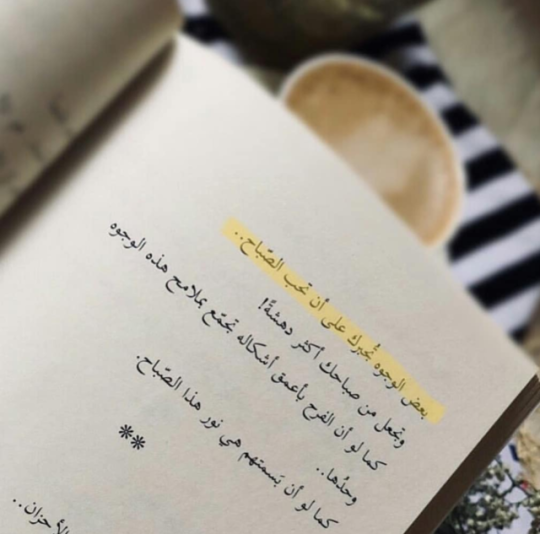 بعض الوجوه تُجبرك على أن تحب الصّباح..
وتجعل من صباحك أكثر دهشةً!
كما لو أن الفرح بأعمق أشكاله تجمّع بملامح هذه الوجوه
وحدُها..
كما لو أن بَسمتهم هي نور هذا الصّباح.
**
الأحزان..